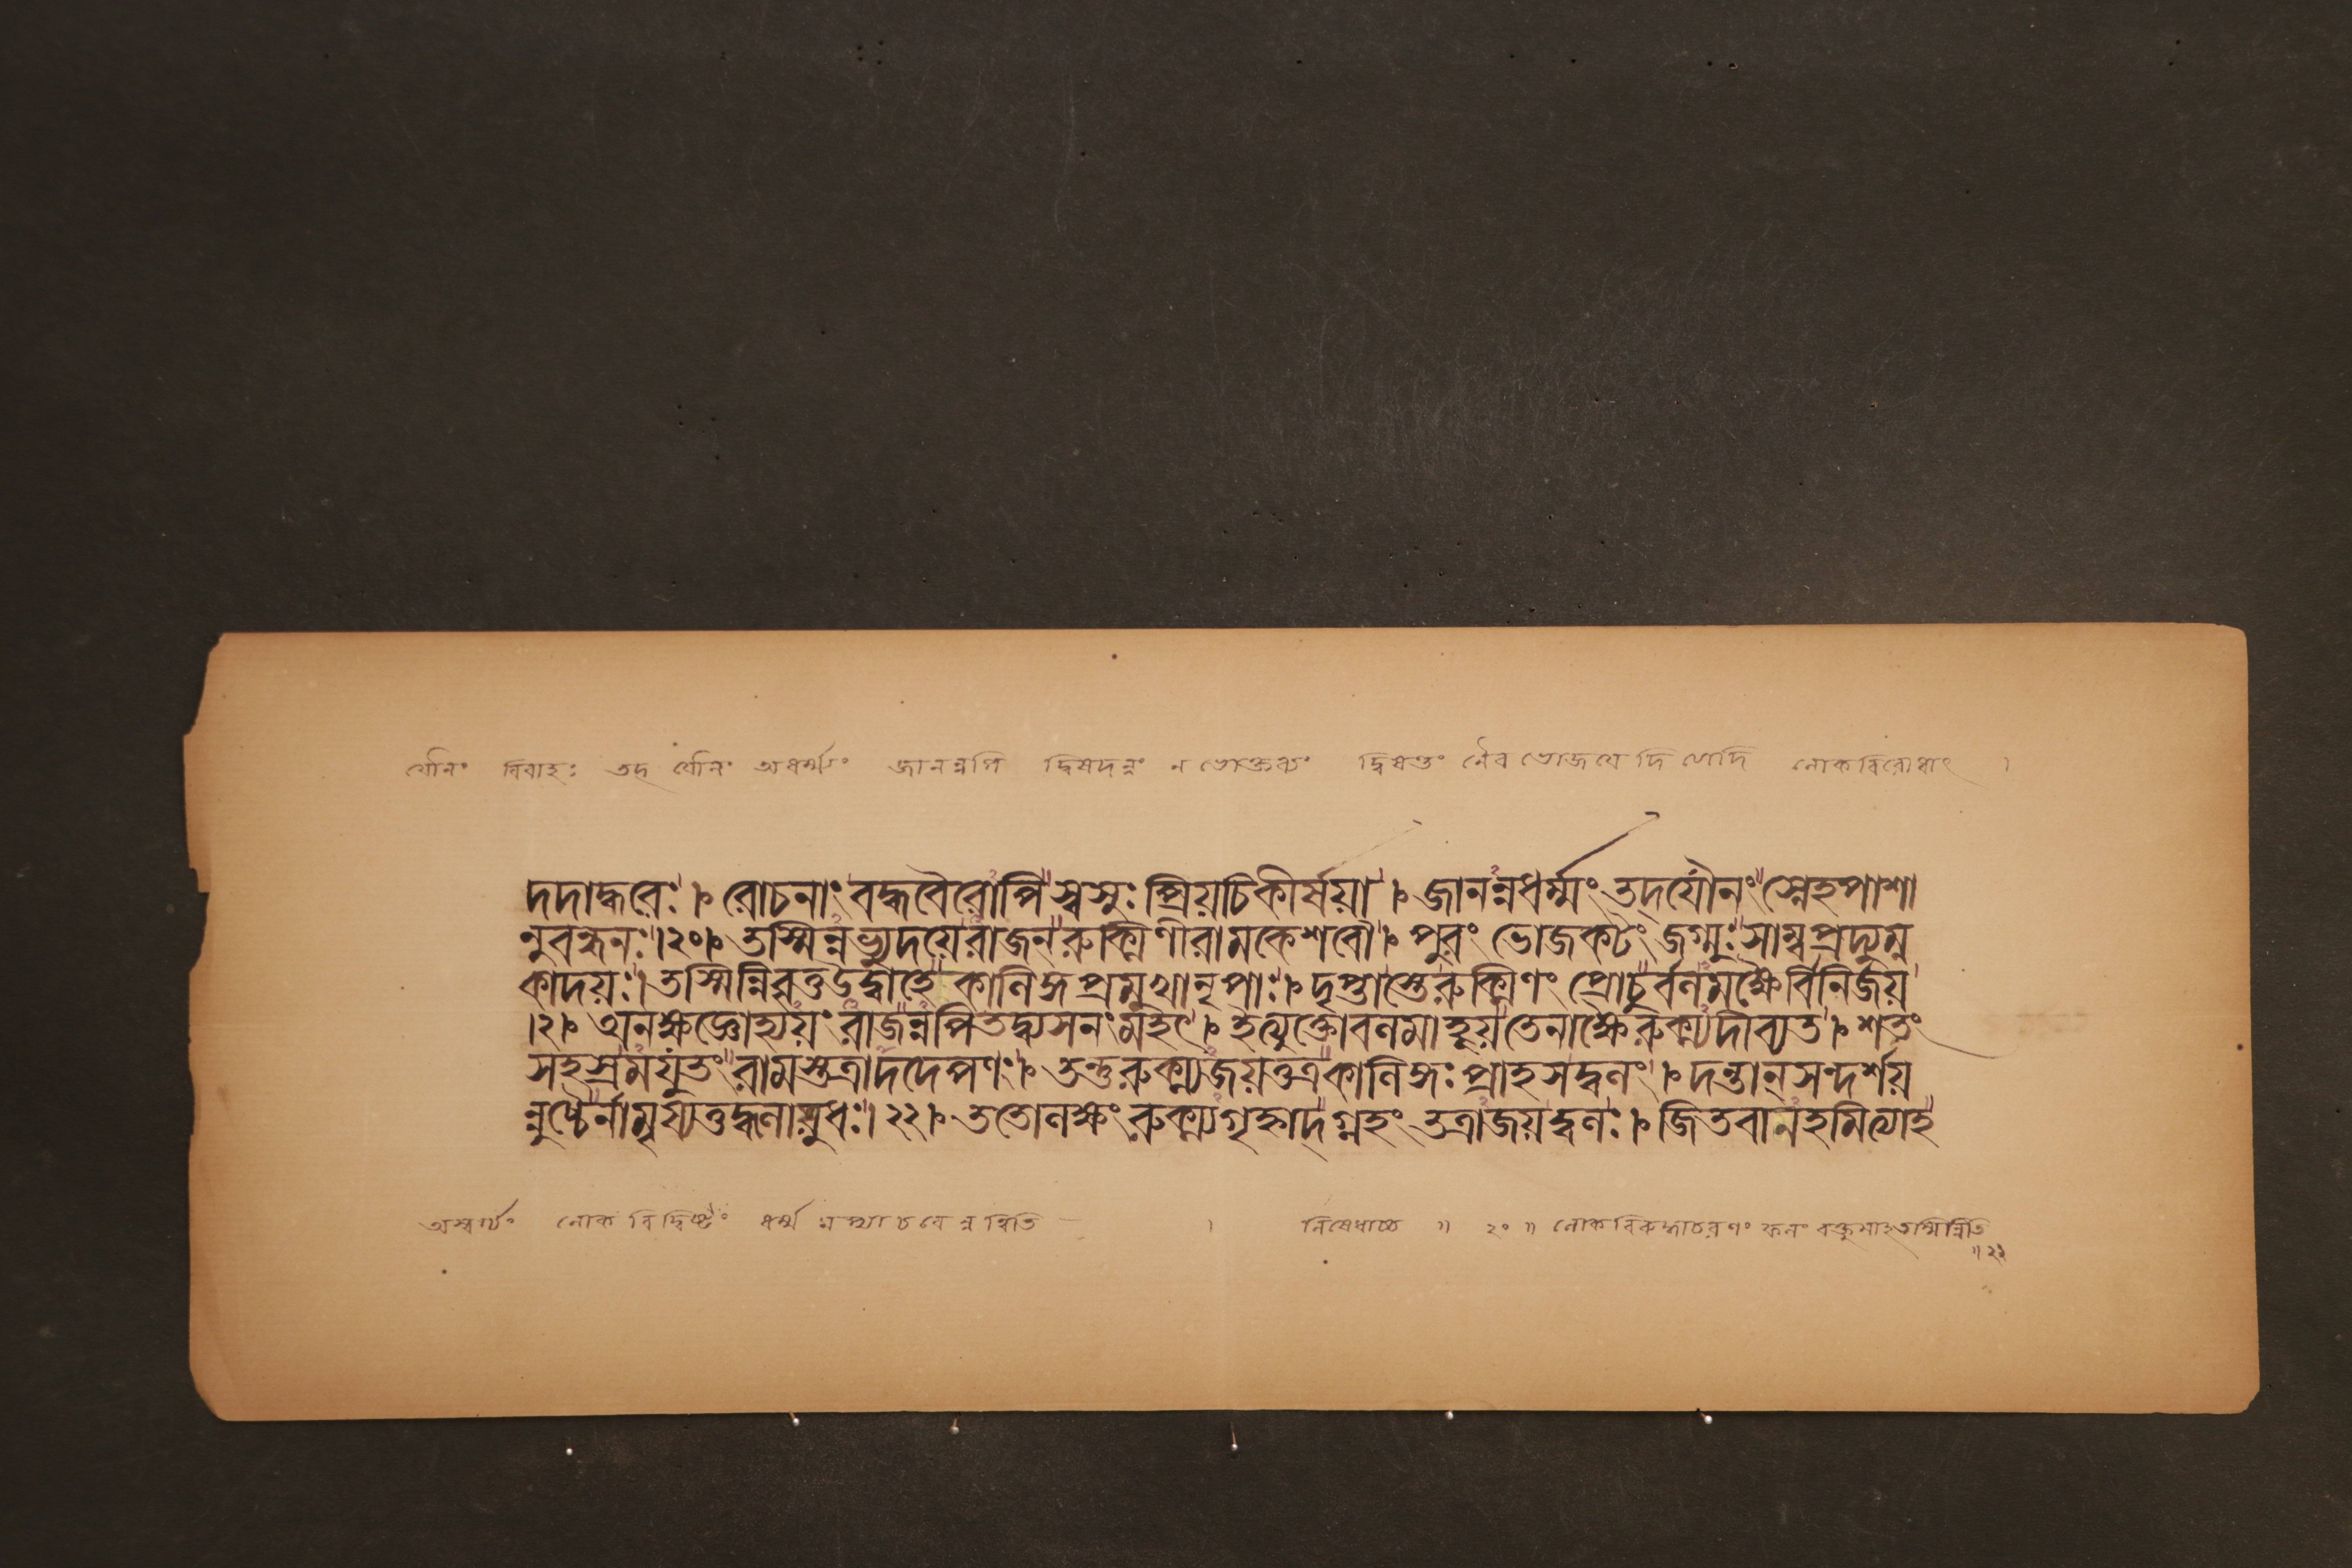 যৌনং বিবাহঃ তদ্ যৌনং অধর্ম্ম্যং জানন্নপি দ্বিষদন্নং ন ভোক্তব্যং দ্বিষন্তং নৈব ভোজয়েদিত্যাদি লোকবিরোধাৎ ।
দদাদ্ধরেঃ । রোচনাং বদ্ধবৈরোপি স্বসুঃ প্রিয়চিকীর্ষয়া । জানন্নধর্ম্মং তদ্যৌনং স্নেহপাশা
নুবন্ধনঃ । ২০ । তস্মিন্নভ্যুদয়ে রাজন্ রুক্মিণী রামকেশবৌ । পুরং ভোজকটং জগ্মুঃ সাম্বপ্রদ্যুম্ন
কাদয়ঃ । তস্মিন্নিবৃত্তউদ্বাহে কালিঙ্গপ্রমুখা নৃপাঃ । দৃপ্তাস্তে রুক্মিণং প্রোচুর্বলমক্ষৈর্বিনির্জয়
। ২ । অনক্ষজ্ঞোহ্যয়ং রাজন্নপি তদ্ব্যসনং মহৎ । ইত্যুক্তো বলমাহূয় তেনাক্ষৈ রুক্ম্যদীব্যত । শতং
সহস্রমযুতং রামস্তত্রাদদে পণং । তন্তু রুক্ম্যজয়ত্তত্র কালিঙ্গঃ প্রাহসদ্বলং । দন্তান্ সন্দর্শয়
ন্নুচ্চৈর্নামৃষ্যত্তদ্ধলায়ুধঃ । ২২ । ততো লক্ষং রুক্ম্যগৃহ্নাদ্ গ্লহং তত্রাজয়দ্বলঃ । জিতবানহমিত্যাহ
অস্বর্গ্যং লোকবিদ্বিষ্টং ধর্ম্মমপ্যাচরেন্নত্বিতি । নিষেধাচ্চ ॥ ২০ ॥ লোকবিরুদ্ধাচরণং ফলং বক্তুমাহ তস্মিন্নিতি
॥ ২১